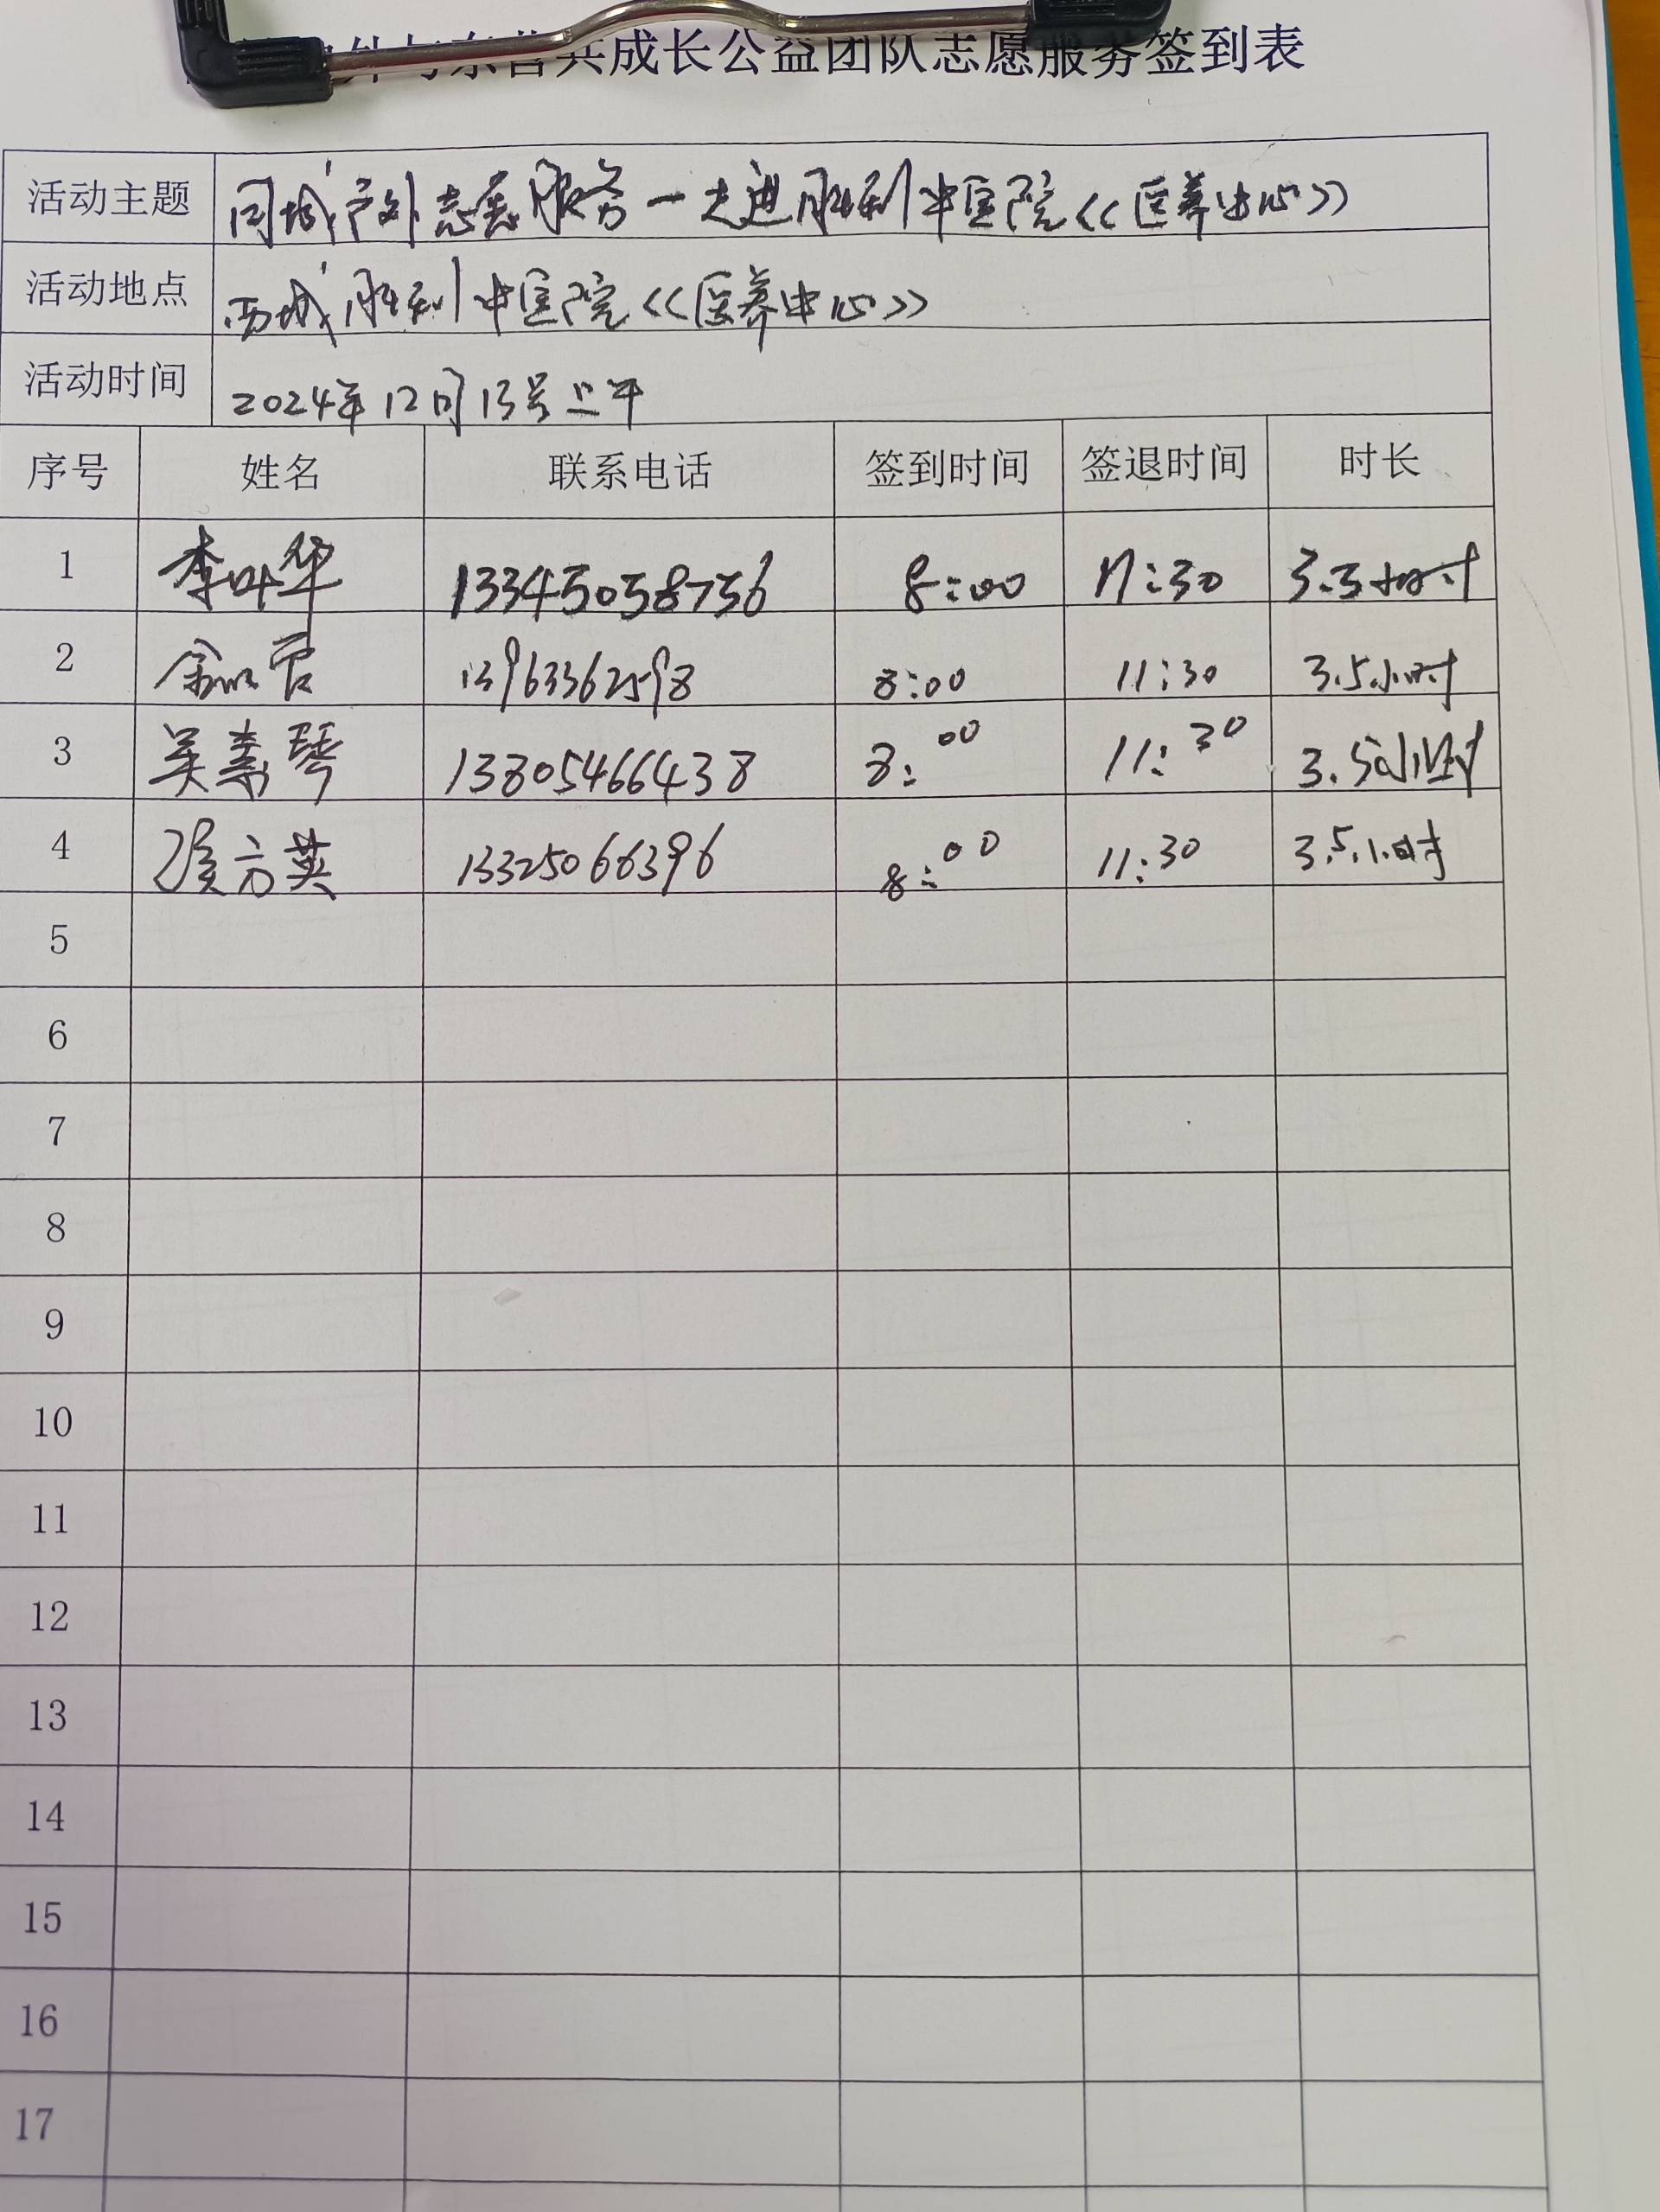 共成长公益团队志愿服务签到表
活动主题 同城户外志愿服务一走进胜利中医院<<医养中心>>
活动地点 西城胜利中医院<<医养中心>>
活动时间 2024年12月13号上午
序号 姓名 联系电话 签到时间 签退时间 时长
1 李叶华 13345058756 8:00 11:30 3.5小时
2 13963362598 8:00 11:30 3.5小时
3 吴素琴 13805466438 8:00 11:30 3.5小时
4 方英 13325066396 8:00 11:30 3.5小时
5
6
7
8
9
10
11
12
13
14
15
16
17